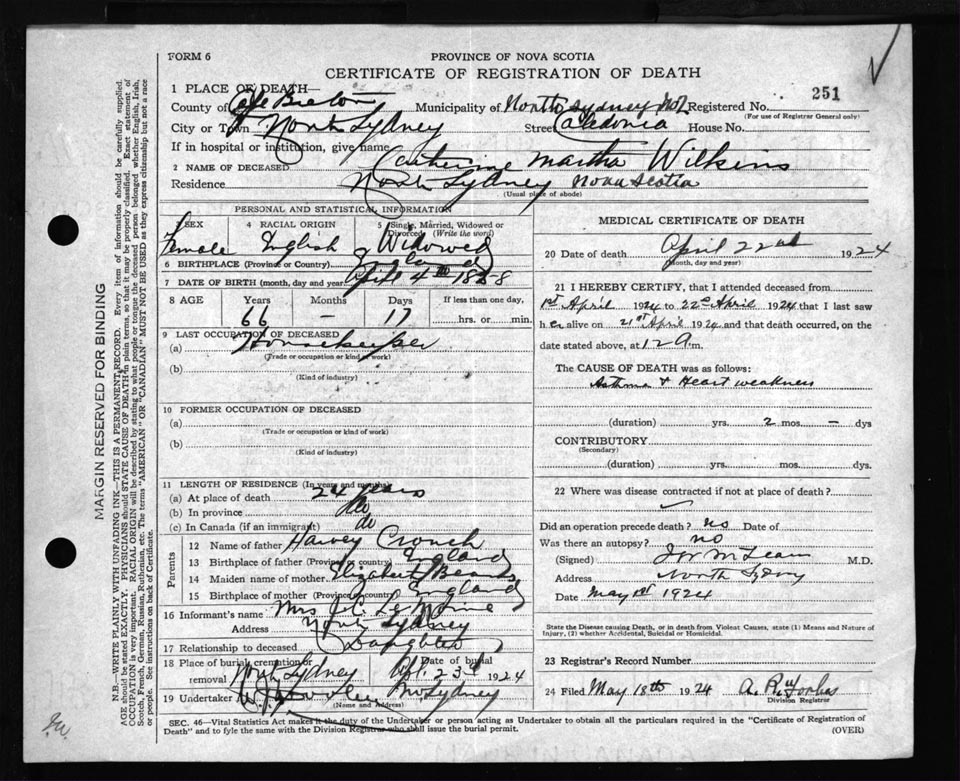 FORM 6
PROVINCE OF NOVA SCOTIA
CERTIFICATE OF REGISTRATION OF DEATH
251
1 PLACE OF DEATH—
County of Cape Breton Municipality of North Sydney No2 Registered No.
(For use of Registrar General only)
City or Town North Sydney Street Caledonia House No.
If in hospital or institution, give name
2 NAME OF DECEASED Catherine Martha Wilkins
Residence North Sydney Nova Scotia
(Usual place of abode)
PERSONAL AND STATISTICAL INFORMATION
SEX Female
4 RACIAL ORIGIN English
5 Single, Married, Widowed or Divorced (Write the word) Widowed
6 BIRTHPLACE (Province or Country) England
7 DATE OF BIRTH (month, day and year) April 4th 1858
8 AGE Years Months Days If less than one day,
66 – 17 hrs. or min.
9 LAST OCCUPATION OF DECEASED
(a) Housekeeper
(Trade or occupation or kind of work)
(b)
(Kind of industry)
10 FORMER OCCUPATION OF DECEASED
(a)
(Trade or occupation or kind of work)
(b)
(Kind of industry)
11 LENGTH OF RESIDENCE (In years and months)
(a) At place of death 24 years
(b) In province do
(c) In Canada (if an immigrant) do
Parents
12 Name of father Harvey Crouch
13 Birthplace of father (Province or country) England
14 Maiden name of mother Elizabeth
15 Birthplace of mother (Province or country) England
16 Informant's name Mrs J.C. LeMoine
Address North Sydney
17 Relationship to deceased Daughter
18 Place of burial, cremation or removal North Sydney Date of burial Apl. 23rd 1924
19 Undertaker No Sydney
(Name and Address)
MEDICAL CERTIFICATE OF DEATH
20 Date of death April 22nd 1924
(Month, day and year)
21 I HEREBY CERTIFY, that I attended deceased from
1st April 1924 to 22nd April 1924 that I last saw
her alive on 21st April 1924 and that death occurred, on the
date stated above, at 12 a.m.
The CAUSE OF DEATH was as follows:
Asthma & Heart weakness
(duration) yrs. 2 mos – dys
CONTRIBUTORY
(Secondary)
(duration) yrs. mos. dys.
22 Where was disease contracted if not at place of death?
Did an operation precede death? no Date of
Was there an autopsy? no
(Signed) McLean M.D.
Address North Sydney
Date May 1st 1924
State the Disease causing Death, or in death from Violent Causes, state (1) Means and Nature of
Injury, (2) whether Accidental, Suicidal or Homicidal.
23 Registrar's Record Number
24 Filed May 18th 1924 A. R. Forbes
Division Registrar
SEC. 46—Vital Statistics Act makes it the duty of the Undertaker or person acting as Undertaker to obtain all the particulars required in the "Certificate of Registration of
Death" and to fyle the same with the Division Registrar who shall issue the burial permit.
(OVER)
MARGIN RESERVED FOR BINDING
N.B.—WRITE PLAINLY WITH UNFADING INK—THIS IS A PERMANENT RECORD. Every item of information should be carefully supplied.
AGE should be stated EXACTLY. PHYSICIANS should STATE CAUSE OF DEATH in plain terms, so that it may be properly classified. Exact statement of
OCCUPATION is very important. RACIAL ORIGIN will be described by stating to what people or tongue the deceased person belonged whether English, Irish,
Scotch, French, German, Russian, Ruthenian, etc. The terms "AMERICAN" OR "CANADIAN" MUST NOT BE USED as they express citizenship but not a race
or people. See instructions on back of Certificate.